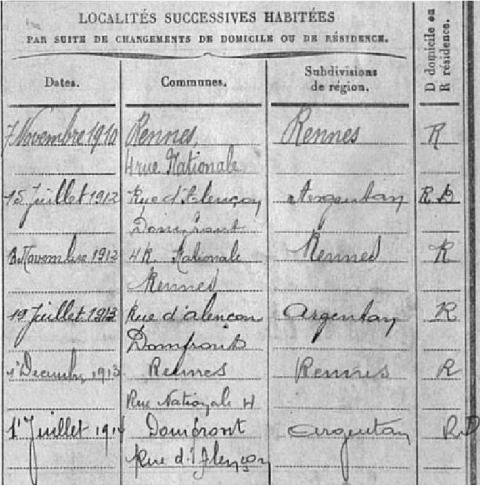 LOCALITÉS SUCCESSIVES HABITÉES
PAR SUITE DE CHANGEMENTS DE DOMICILE OU DE RÉSIDENCE.
D domicile ou
R résidence.
Dates. Communes. Subdivisions
de région.
7 Novembre 1910 Rennes, Rennes R
4 rue Nationale
15 Juillet 1912 Rue d'Alençon Argentan R D
Domfront
Novembre 1912 4 R. Nationale Rennes R
Rennes
19 Juillet 1913 Rue d'alencon argentan R
Domfront
1er Decembre 1913 Rennes Rennes R
Rue Nationale 4
1er Juillet 1914 Domfront argentan R D
Rue d'Alençon